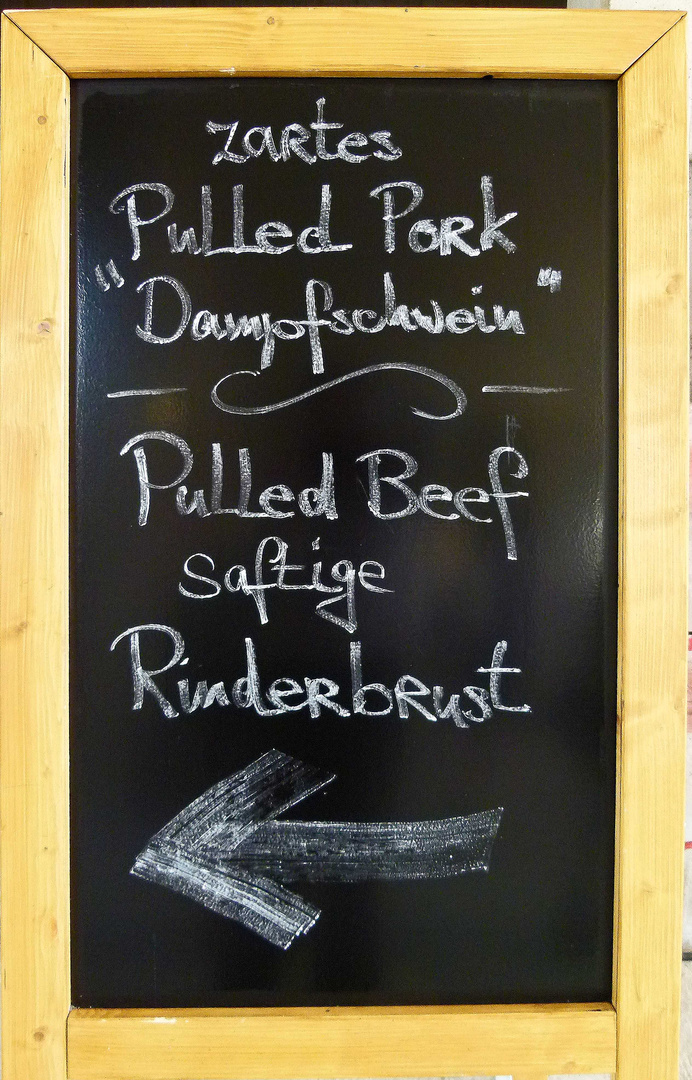 zartes
Pulled Pork
"Dampfschwein"
Pulled Beef
saftige
Rinderbrust